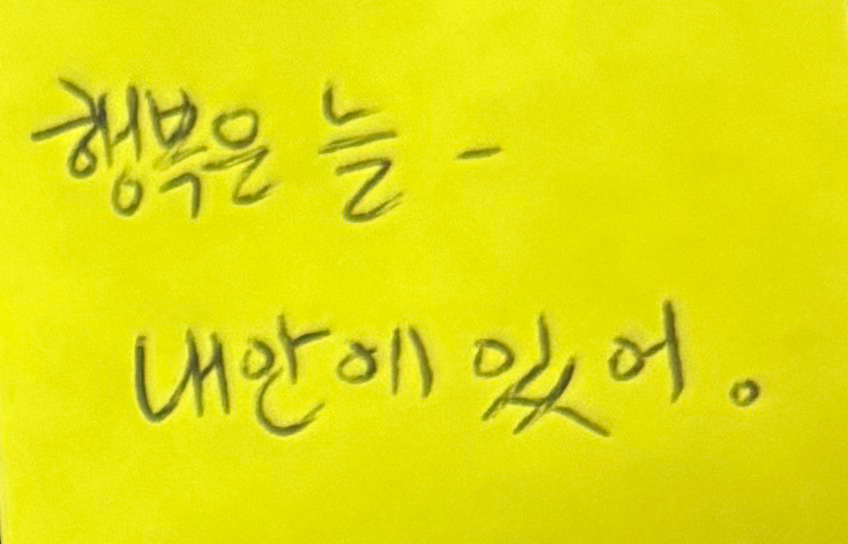 행복은 늘 -
내안에 있어.